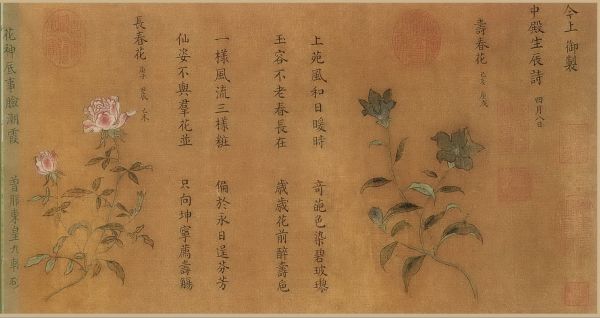 今上 御製
中殿生辰詩 四月八日
壽春花
上苑風和日暖時 奇葩色染碧玻瓈
玉容不老春長在 歲歲花前醉壽巵
一樣風流三樣粧 偏於永日逞芬芳
仙姿不與羣花並 只向坤寧薦壽觴
長春花
花神底事臉潮霞 曾服東皇九